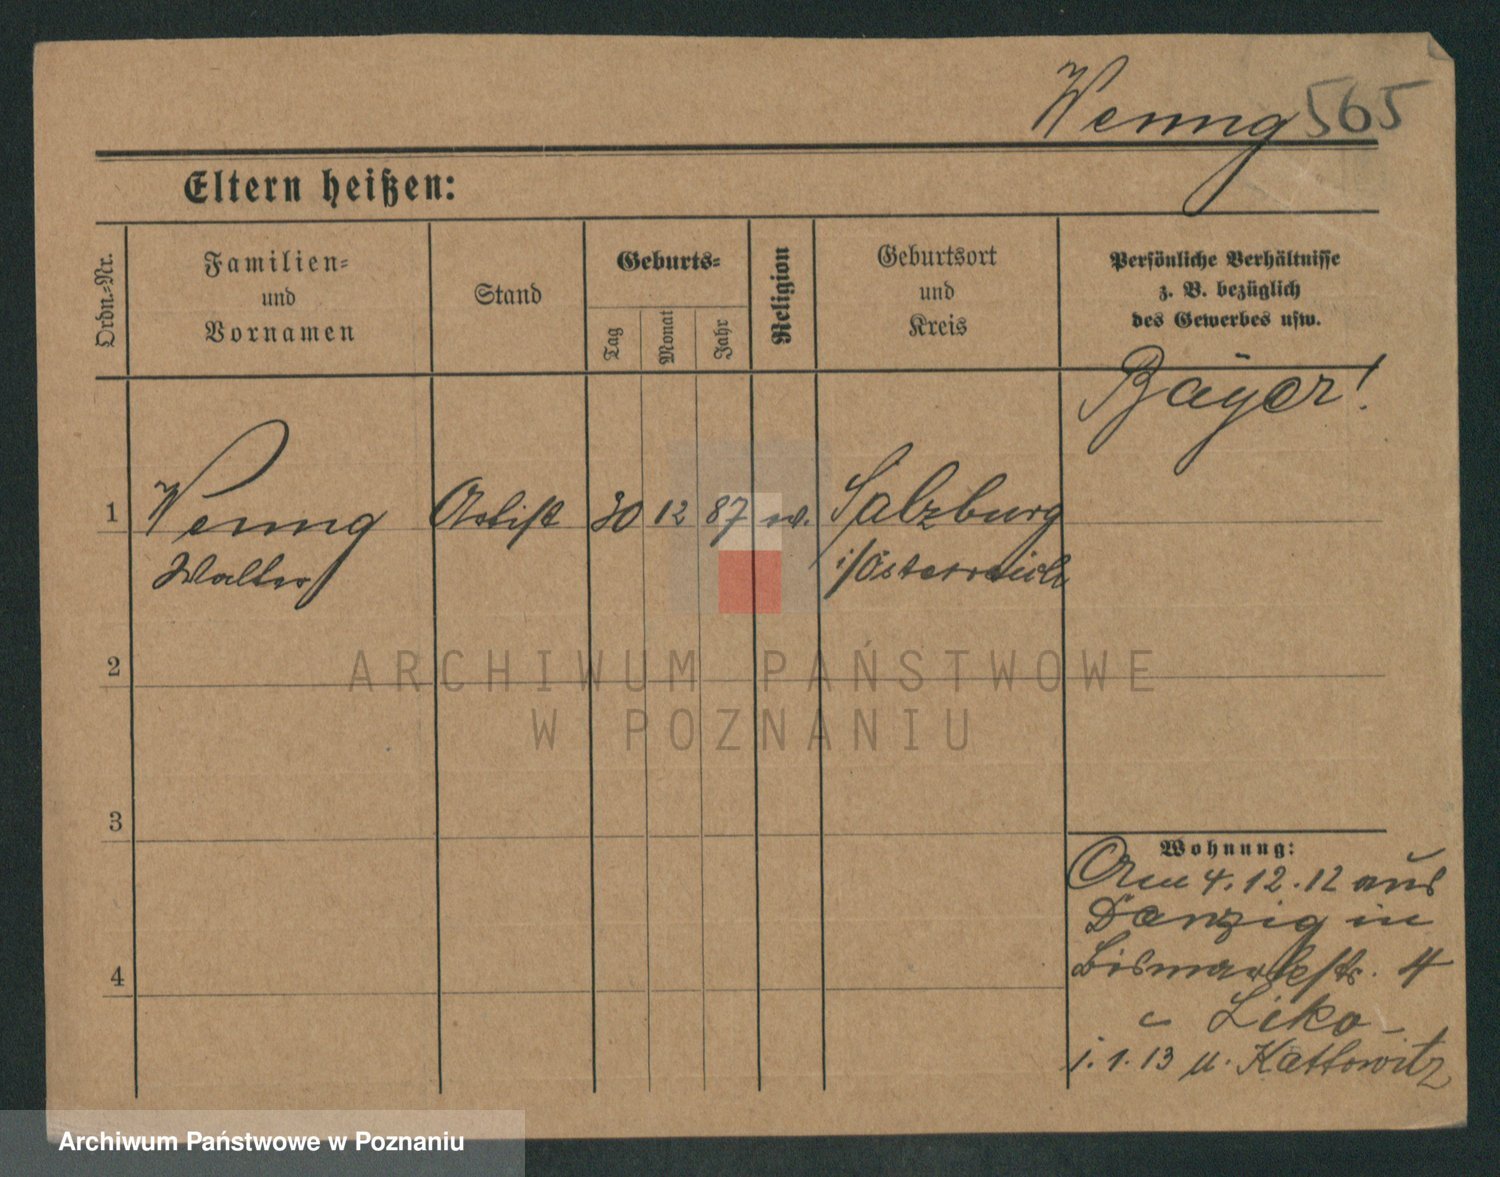 Wenng 565
Eltern heißen:
Ordn.-Nr.
Familien-
und
Vornamen
Stand
Geburts-
Tag
Monat
Jahr
Religion
Geburtsort
und
Kreis
Persönliche Verhältnisse
z. B. bezüglich
des Gewerbes usw.
Bayer!
1 Wenng Artist 30 12 87 Salzburg
Walter i/Österreich
2
ARCHIWUM PAŃSTWOWE
W POZNANIU
3
4
Wohnung:
Am 4.12.12 aus
Danzig in
Bismarckstr. 4
Liko
1.13 Kattowitz
Archiwum Państwowe w Poznaniu